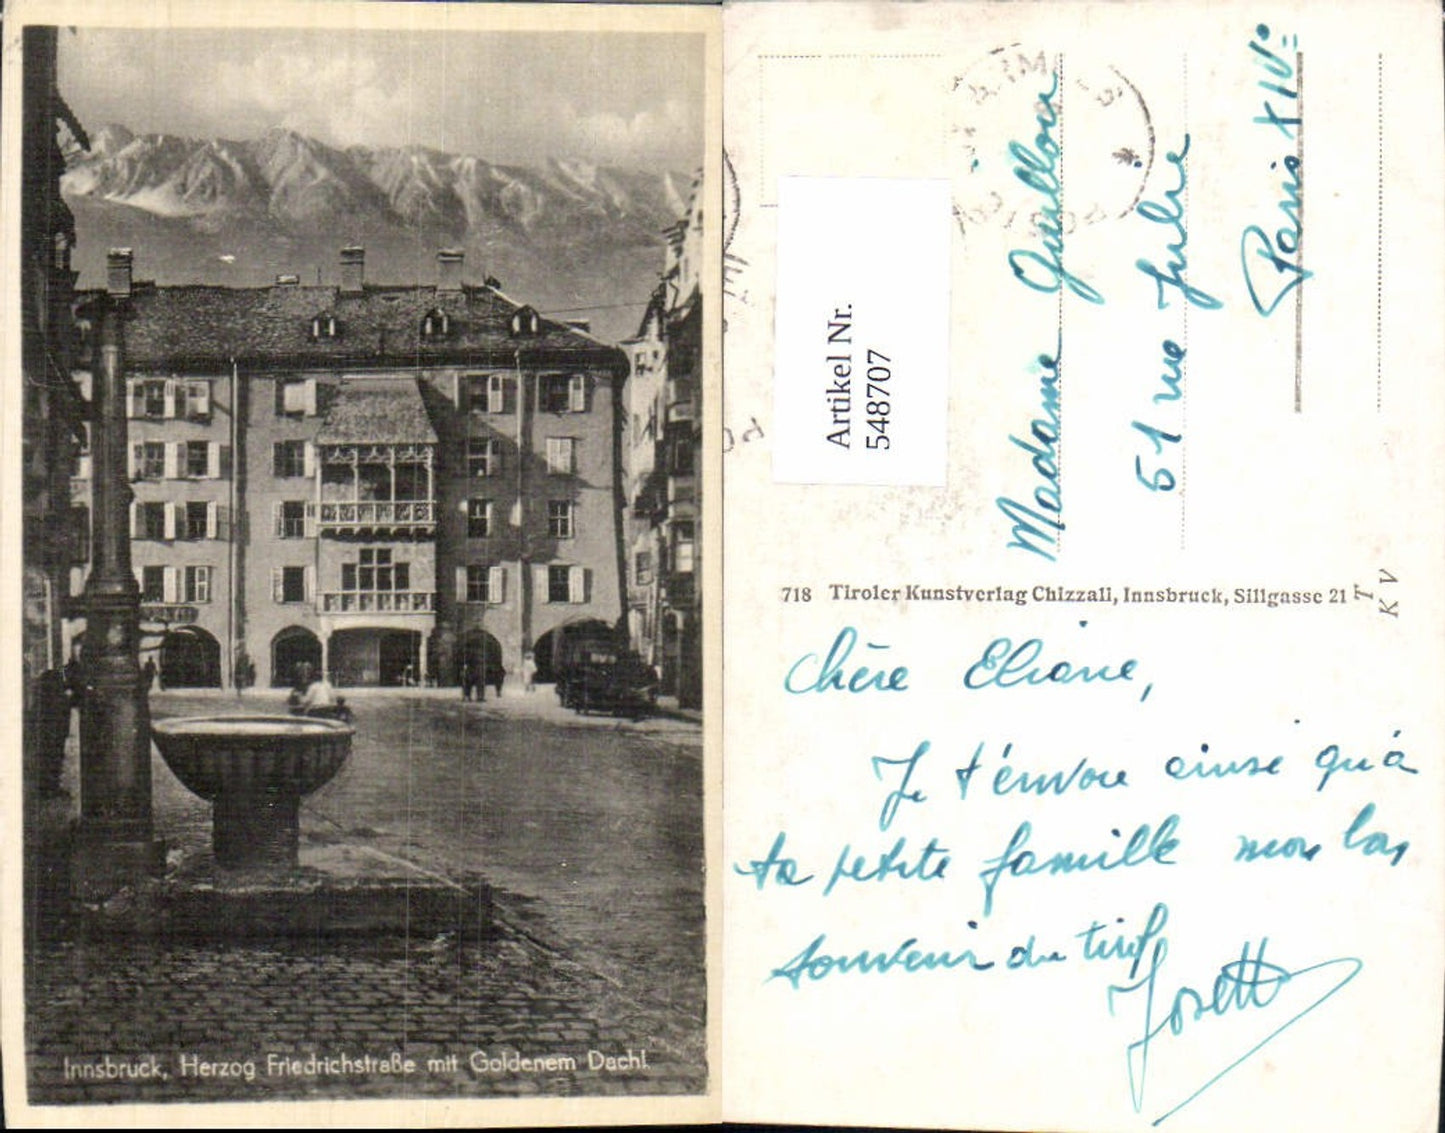 Innsbruck, Herzog Friedrichstraße mit Goldenem Dachl.
Artikel Nr.
548707
Madame Guillou
51 rue Julie
Paris XIVº
718 Tiroler Kunstverlag Chizzali, Innsbruck, Sillgasse 21
T
K V
Chère Eliane,
Je t'envoie ainsi qu'à
ta petite famille mon bon
souvenir du tirol
Josette